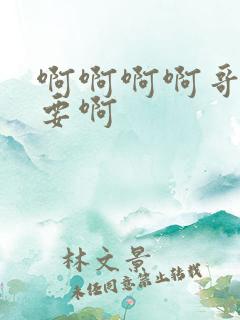 啊啊啊啊哥
要啊
林文景
未经同意禁止转载